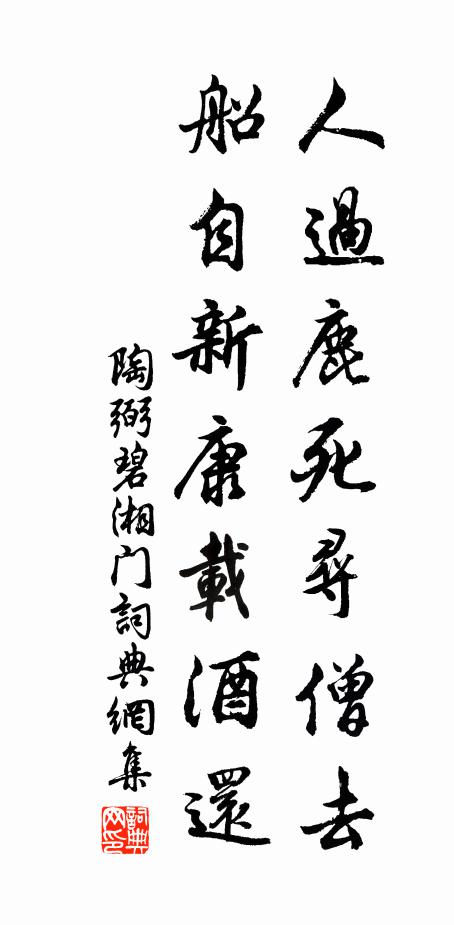 人過鹿死尋僧去
船自新康載酒還
陶弼碧湘门詞典網集
詞典網印